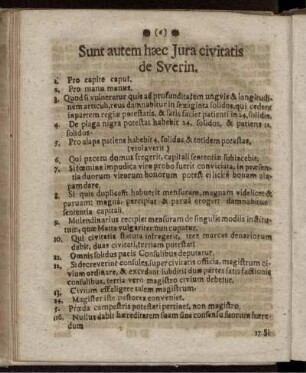 (6)
Sunt autem hæc Jura civitatis
de Sverin.
1. Pro capite caput.
2. Pro manu manus.
3. Quod si vulneratur quis ad profunditatem ungvis & longitudi-
nem articuli, reus damnabitur in sexaginta solidos, qui cedent
in partem regiæ potestatis, & satis faciet patienti in 24. solidis.
4. De plaga nigra potestas habebit 24. solidos, & patiens 12.
solidos.
5. Pro alapa patiens habebit 4. solidos & totidem potestas,
(violaverit)
6. Qui pacem domus fregerit, capitali sententiæ subiacebit.
7. Si fœmina impudica vire probo fuerit convicians, in præsen-
tia duorum virorum bonorum potest ei licite bonam ala-
pam dare
8. Si quis duplicem habuerit mensuram, magnam videlicet &
parvam: magna, percipiat & parva eroget damnabitur
sententia capitali.
9. Molendinarius recipiet mensuram de singulis modiis institu-
tam, quæ Matta vulgariter nuncupatur.
10. Qui civitatis statuta infregerit, tres marcas denariorum
dabit, duas civitati, tertiam potestati
11. Omnis solidus pacis Consulibus deputatur.
12. Si decreverint consules, super civitatis officia, magistrum ci-
vium ordinare, & excedunt subditi duæ partes satisfactionis
consulibus, tertia vero magistro civium debetur.
13. Civium est eligere talem magistrum.
14. Magister iste pastores conveniet.
15. Præda campestris potestati pertinet, non magistro.
16. Nullus dabit hæreditatem suam sine consensu suorum hære-
dum
17. Si